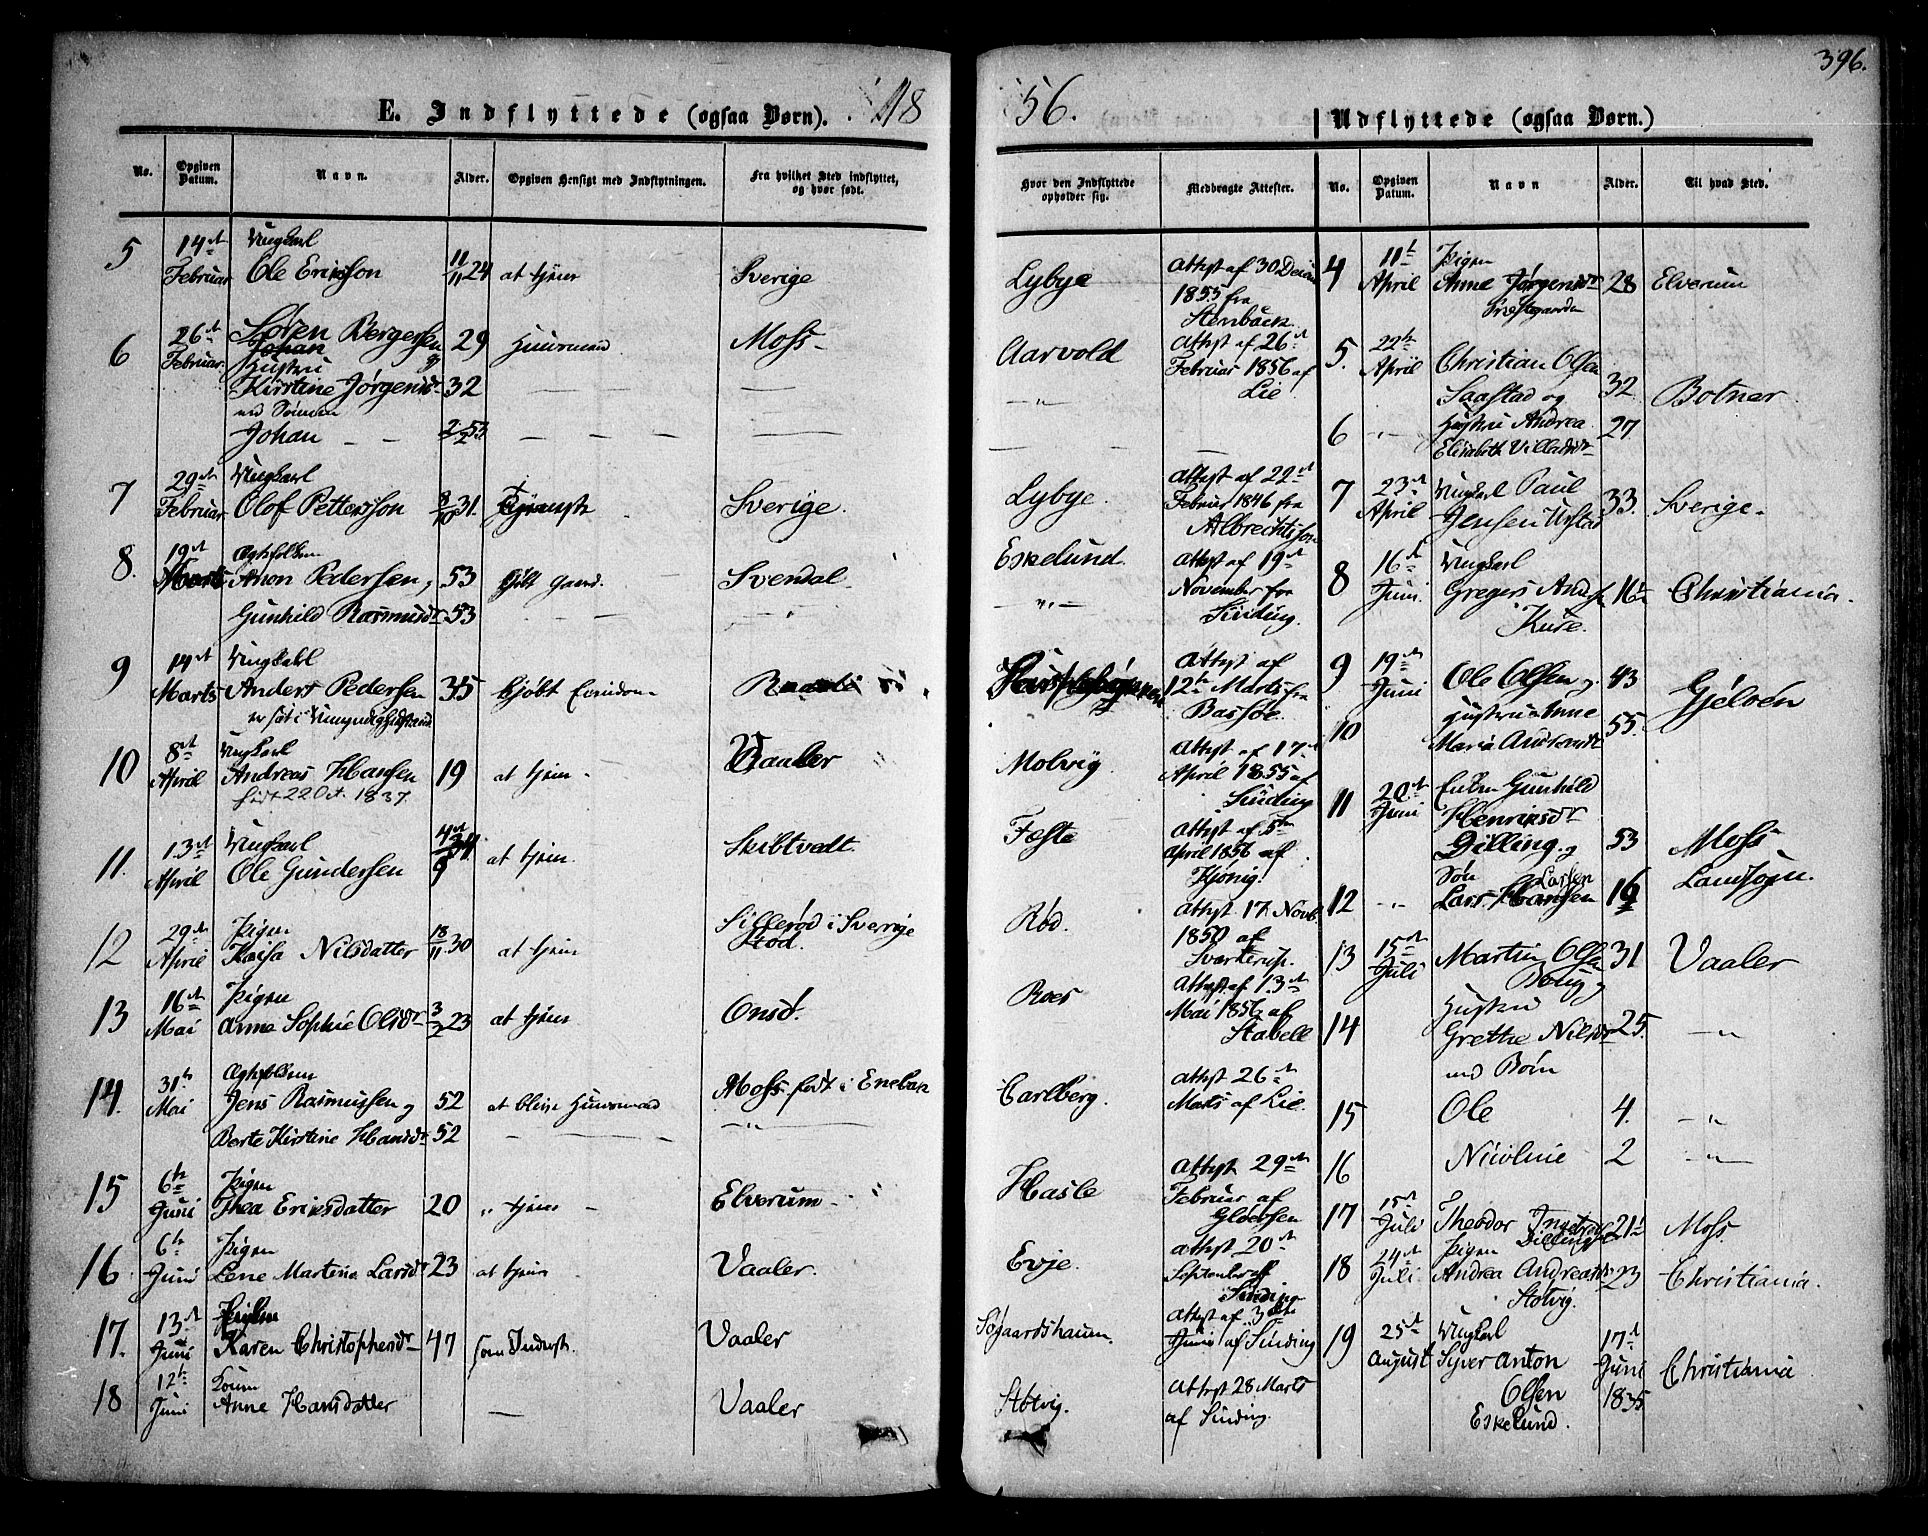 396.
E. Indflyttede (ogsaa Børn). 18
56. Udflyttede (ogsaa Børn.)
No. Opgiven Datum. Navn. Alder. Opgiven Hensigt med Indflytningen. Fra hvilket Sted indflyttet, og hvor født.
Hvor den Indflyttede opholder sig. Medbragte Attester. No. Opgiven Datum. Navn Alder. Til hvad Sted.
5 14de Februar Ungkarl
Ole Erikson 11/11 24 at tjene Sverige
6 26de Februar Søren Bergersen 29 Huusmand Moss
Johan
Hustru
Kirstine Jørgensdr 32
med Sønnen
Johan 2/2 53
7 29de Februar Ungkarl
Olof Petterson 31. Sverige.
8. 19de Marts Ægtefolkene
Anon Pedersen, 53 Kjøbt Gaard. Svendal
Gunhild Rasmusdr 53 "
9 14de Marts Ungkarl
Anders Pedersen 35 Kjøbt Eiendom
10 8de April Ungkarl
Andreas Hansen 19 at tjene Vaaler
født 22 Oct. 1837.
11. 13de April Ungkarl
Ole Gundersen at tjene Skibtvedt.
12 29de April Pigen
Kaisa Nilsdatter 18/11 30 at tjene i Sverige
13 16de Mai Pigen
Anne Sophie Olsdr 3/2 23 at tjene Onsø.
14. 31te Mai Ægtefolkene
Jens Rasmussen og 52 at blive Huusmand Moss. født i Enebak
Berte Kirstine Hansdr 52 "
15 6te Juni Pigen
Thea Eriksdatter 20 " tjene Elverum
16 6te Juni Pigen
Lene Martine Larsdr 23 at tjene Vaaler.
17. 13de Juni
Karen Christophersdr 47 som Inderst Vaaler
18 12te Juni Kone
Anne Hansdatter Vaaler
Lybye Attest af 30 Decem
1855 fra
Stenbäck
Aarvold Attest af 26de
Februar 1856 af
Lie
"
Lybye. Attest af 22de
Februar 1846 fra
Albrechtsson
Eskelund. Attest af 19de
" November fra
Sinding.
Attest af
12te Marts fra
Bassøe.
Molvig Attest af 17de
April 1855 af
Sinding
Feste Attest af 5te
April 1856 af
Kjønig.
Rød. Attest 17. Novb
1850 af
Roer Attest af 13de
Mai 1856 af
Stabell
Carlberg. Attest 26de
Marts af Lie.
Hasle Attest 29de
Februar af
Gløersen
Evje. Attest 20de
September af
Sinding
Søgaardshaum. Attest af 3die
Juni af Sinding
Støtvig. Attest 28 Marts
af Sinding.
4 11te April Pigen
Anne Jørgensdr 28 Elverum
Prestegaarden
5. 22de April Christian Olsen
Saastad og 32 Botner.
6 " Hustru Andrea 27
Elisabeth Villadsdr
7 23de April Ungkarl Paul 33. Sverige.
Jensen
8 16de Juni Ungkarl
Gregers Christiania.
Kure.
9 19de Juni Ole Olsen og 43 Gjeløen
10 Hustru Anne 55.
Maria
11 20de Juni Enken Gunhild
Henriksdr
Dilling. og 53 Moss
12 " Søn Larsen
Lars Hansen 16 Landsogn.
13 15de Juli Martin Olsen 31 Vaaler
14 Hustru
Grethe Nilsdr 25. "
med Børn
15 Ole 4. "
16 Nicoline 2 "
17 15de Juli Theodor 21 Moss
Dilling
18 24de Juli Pigen
Andrea Andreasdr 23 Christiania.
Støtvig.
19 25de August Ungkarl 17de
Syver Anton Juni Christiania
Olsen 1835
Eskelund.